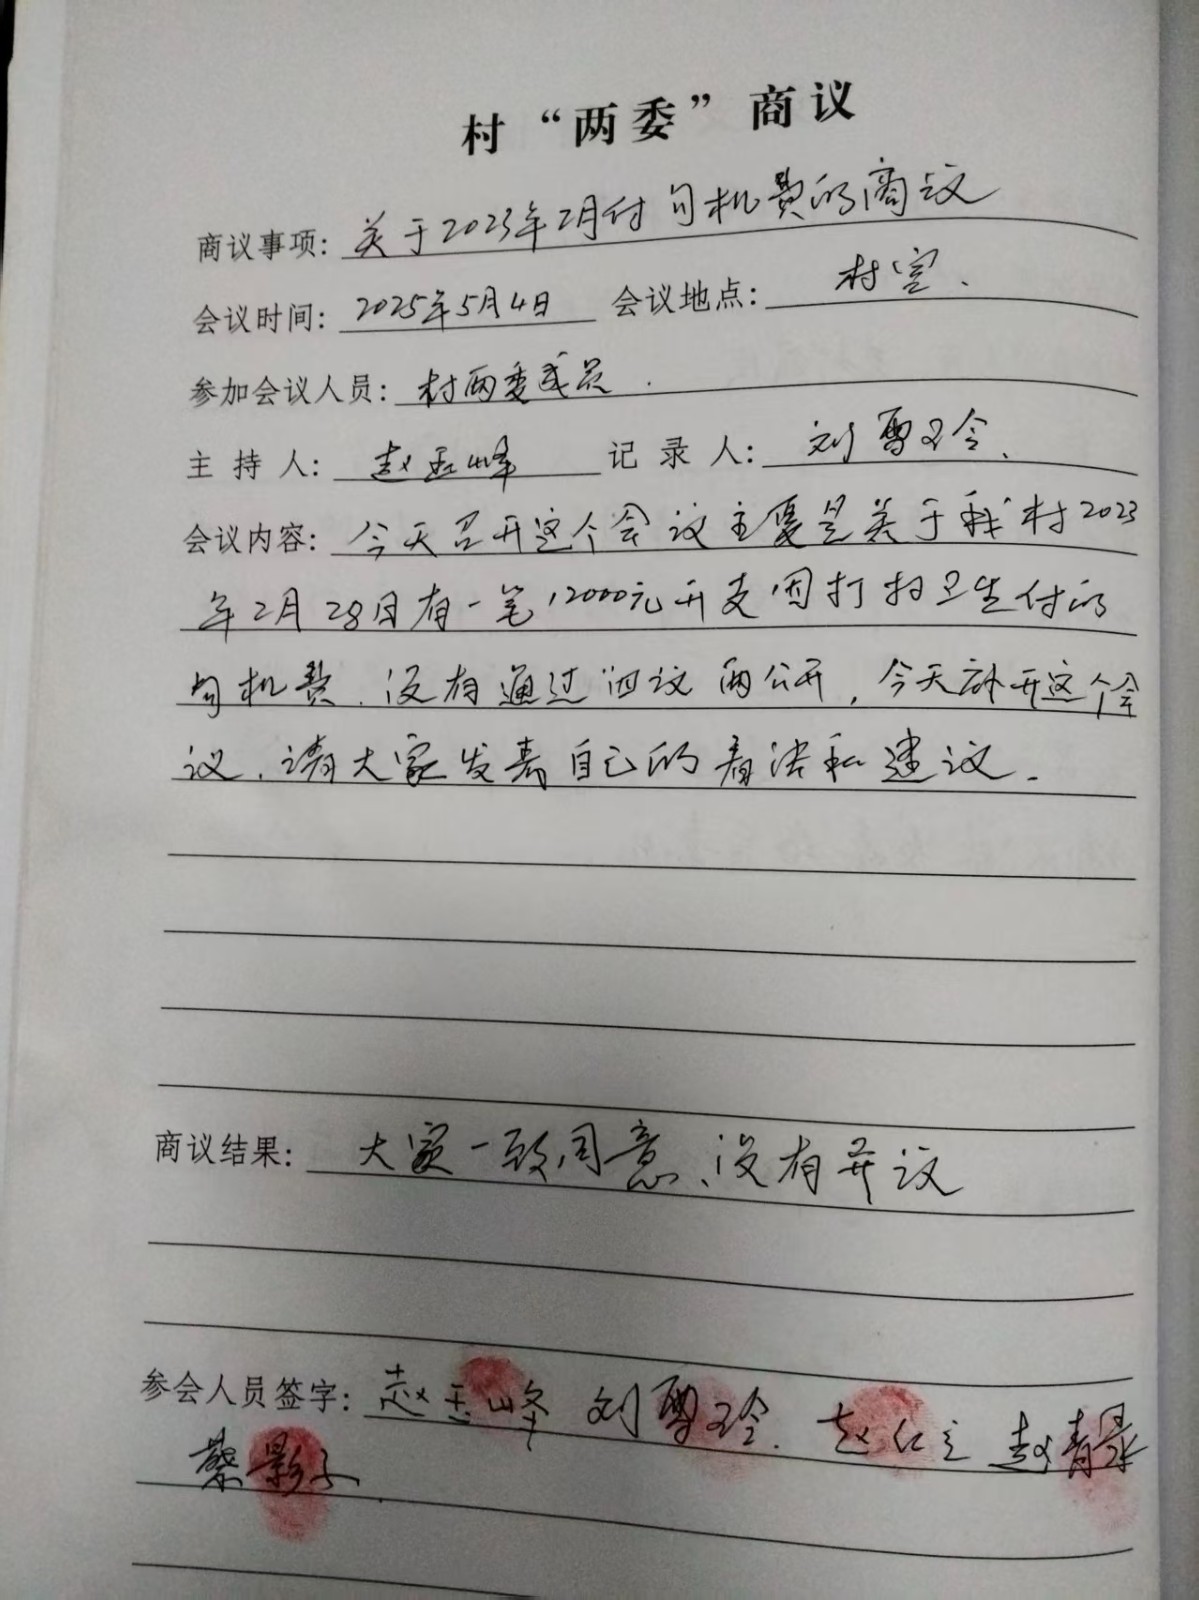 村“两委”商议
商议事项: 关于2023年2月付勾机费的商议
会议时间: 2025年5月4日 会议地点: 村室.
参加会议人员: 村两委成员.
主 持 人: 赵玉峰 记 录 人: 刘雪玲.
会议内容: 今天召开这个会议主要是关于我村2023
年2月28日有一笔12000元开支因打扫卫生付的
勾机费.没有通过四议两公开,今天补开这个会
议.请大家发表自己的看法和建议.
商议结果: 大家一致同意、没有异议
参会人员签字: 赵玉峰 刘雪玲. 赵仁立 赵青录
影子.